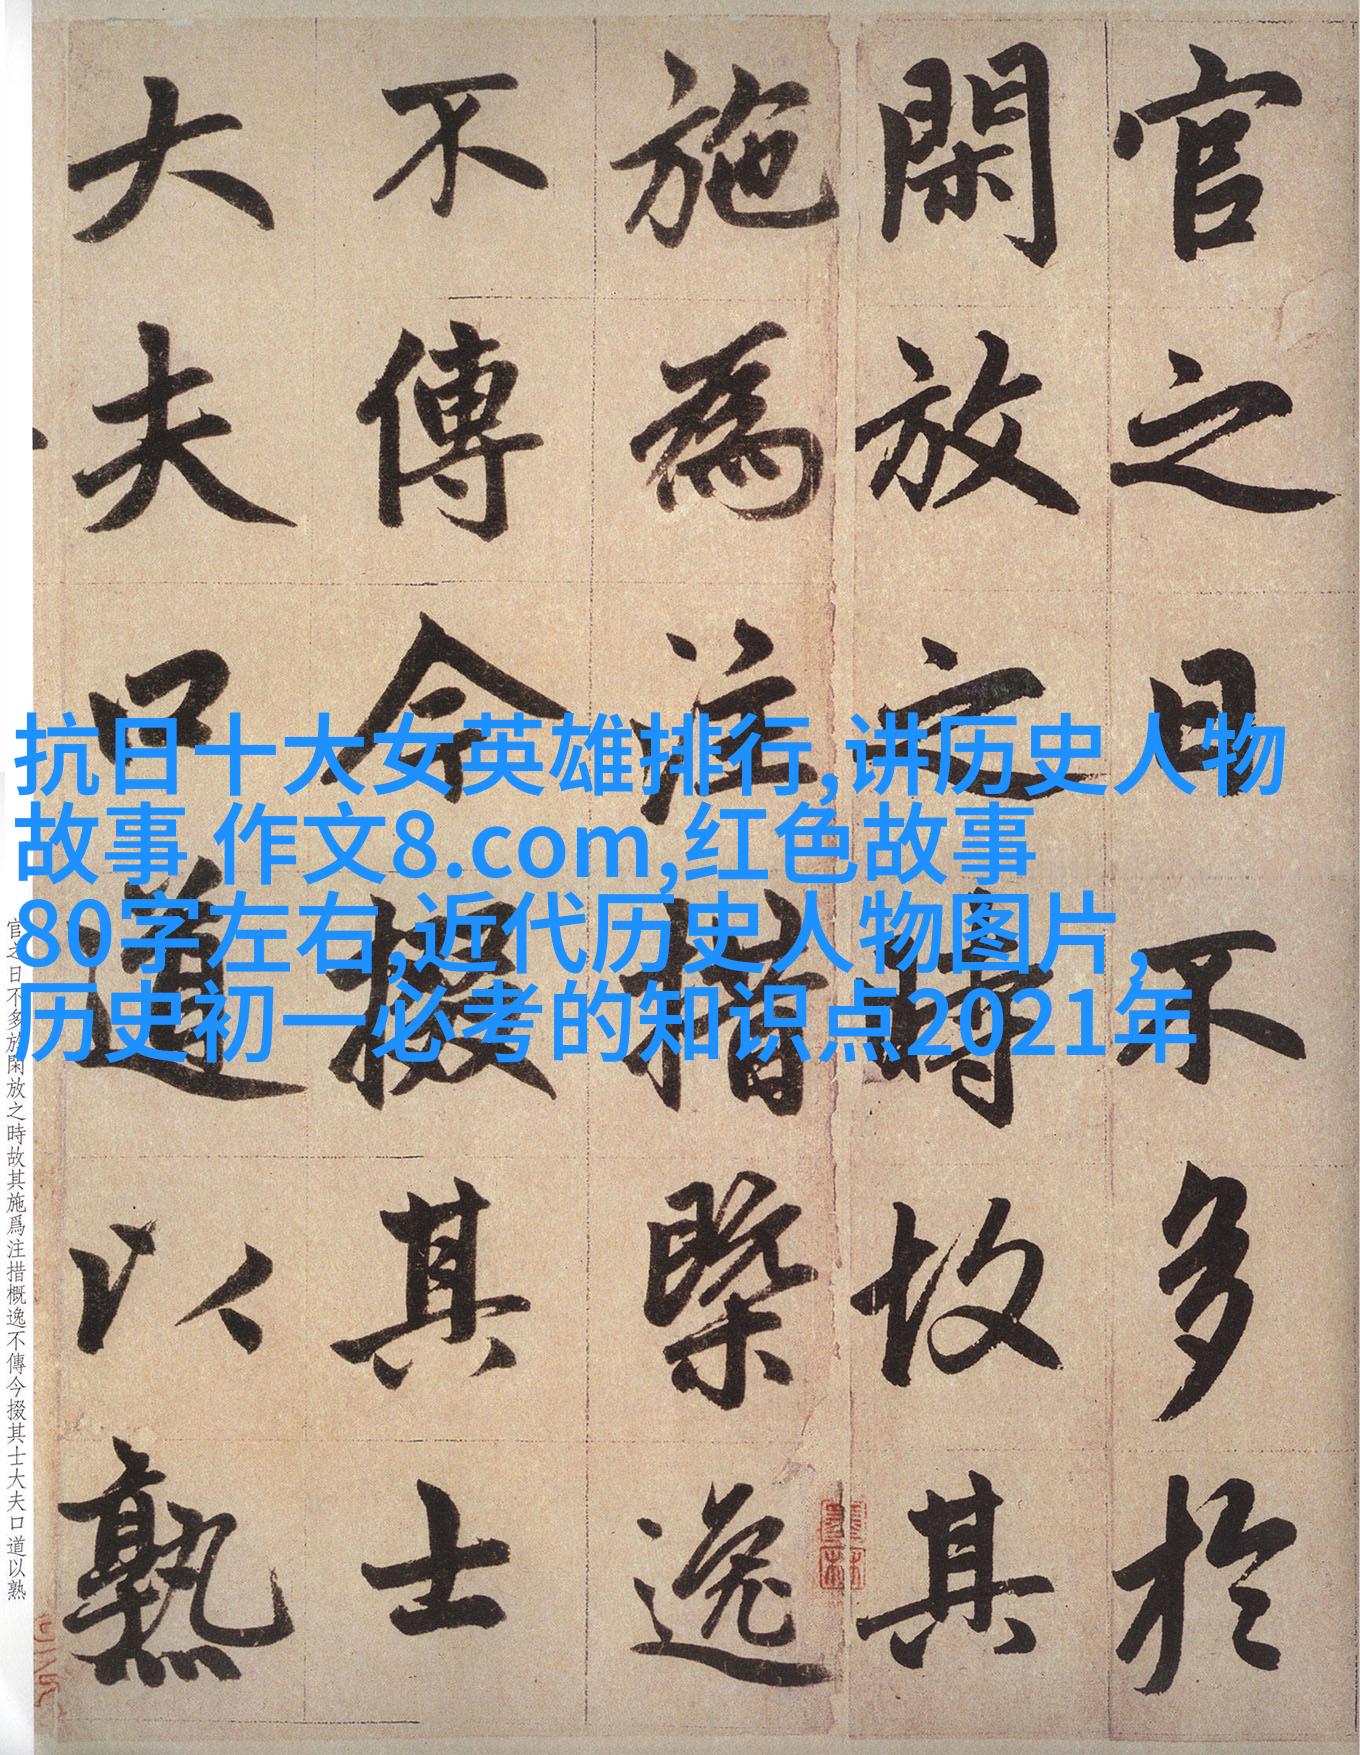 官之日不多於
閑放之時故其
施為注措槩逸
不傳今掇其士
大夫口道以熟
抗日十大女英雄排行,讲历史人物
故事 作文8.com,红色故事
80字左右,近代历史人物图片,
历史初一必考的知识点2021年
官之日不多於閑放之時故其施爲注措概逸不傳今掇其士大夫口道以熟